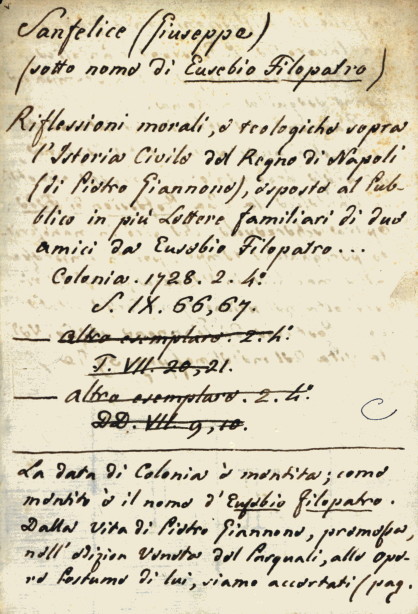 Sanfelice (Giuseppe)
(sotto nome di Eusebio Filopatro)
Riflessioni morali, e teologiche sopra
l'Istoria Civile del Regno di Napoli
(di Pietro Giannone), esposte al Pub-
blico in più Lettere familiari di due
amici da Eusebio Filopatro...
Colonia. 1728. 2. 4.º
S. IX. 66, 67.
— altro esemplare. 2. 4.º
T. VII. 20, 21.
— altro esemplare. 2. 4.º
DD. VII. 9, 10.
La data di Colonia è mentita; come
mentito è il nome d'Eusebio Filopatro.
Dalla Vita di Pietro Giannone, premessa,
nell'edizion Veneta del Pasquali, alle Ope-
re Postume di lui, siamo accertati (pag.